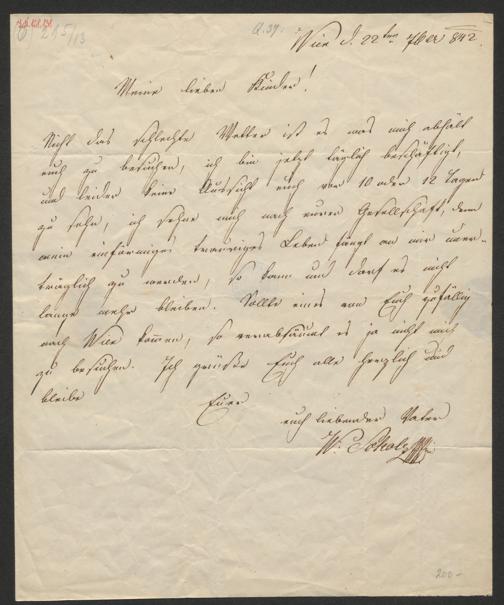 215/13
Q. 37.
Wien d. 22ten 7ber 842.
Meine lieben Kinder!
Nicht das schlechte Wetter ist es was mich abhält
euch zu besuchen, ich bin jetzt täglich beschäftigt,
und leider keine Aussicht euch vor 10 oder 12 Tagen
zu sehn, ich sehne mich nach eurer Gesellschaft, denn
mein einförmiges trauriges Leben fängt an mir uner-
träglich zu werden, so kann und darf es nicht
lange mehr bleiben. Sollte eines von Euch zufällig
nach Wien kommen, so verabsäumt es ja nicht mich
zu besuchen. Ich grüße Euch alle herzlich und
bleibe
Euer
euch liebender Vater
W. Scholz
200-